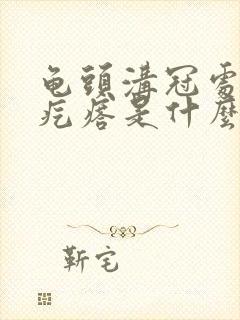 龟頭溝冠處
疙瘩是什麽
靳宅